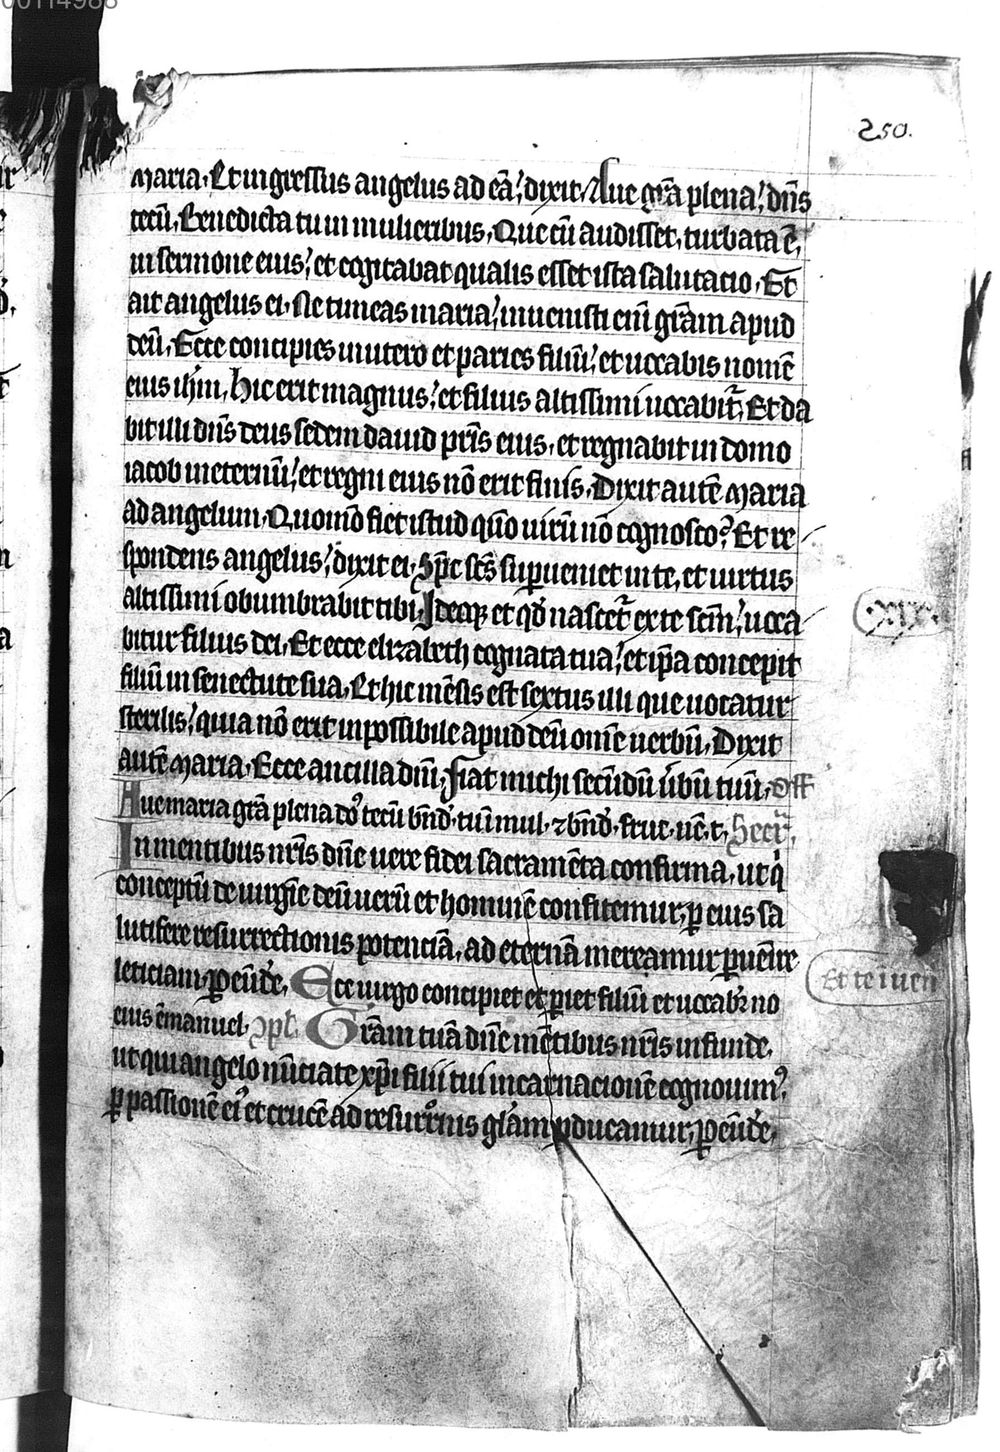 250.
maria. Et ingressus angelus ad eã, dixit. Aue grã plena, dñs
tecũ. Benedicta tu in mulieribus. Que cũ audisset, turbata ẽ
in sermone eius, et cogitabat qualis esset ista salutacio. Et
ait angelus ei. Ne timeas maria, inuenisti eñi grãm apud
deũ. Ecce concipies in utero et paries filiũ, et uocabis nomẽ
eius ihm. Hic erit magnus, et filius altissimi uocabit̃. Et da
bit illi dñs deus sedem dauid pr̃is eius, et regnabit in domo
iacob in eternũ, et regni eius nõ erit finis. Dixit autẽ Maria
ad angelum. Quomõ fiet istud qũo uirũ nõ cognosco? Et re
spondens angelus, dixit ei. Sp̃c sc̃s suꝑueniet in te, et uirtus
altissimi obumbrabit tibi. Ideoqꝫ et qõ nascet̃ ex te sc̃m, uoca
bitur filius dei. Et ecce elizabeth cognata tua, et ip̃a concepit
filiũ in senectute sua. Et hic mẽsis est sextus illi que uocatur
sterilis, quia nõ erit inpossibile apud deũ om̃e uerbũ. Dixit
autẽ Maria. Ecce ancilla dñi, fiat michi secũdũ ũbũ tuũ. Off
Aue maria grã plena dõ tecũ bñd. tu ĩ mul. ⁊ bñd. fruc. uẽ. t. Secr̃.
In mentibus nr̃is dñe uere fidei sacramẽta confirma, ut q̃
conceptũ de uirgĩe deũ uerũ et hominẽ confitemur, ꝑ eius sa
lutifere resurrectionis potenciã, ad eternã mereamur ꝑuẽire
leticiam. ꝑ eũd̃e. Ecce uirgo concipiet et ꝑiet filiũ et uocab̃ no
eius ẽmanuel. Ɔpl. Grãm tuã dñe mẽtibus nr̃is infunde,
ut qui angelo nũciate xp̃i filii tui incarnacionẽ cognouimꝰ,
ꝑ passionẽ eiꝰ et crucẽ ad resurr̃nis glãm ꝑducamur. ꝑ eũd̃e.
Et te in ueñ